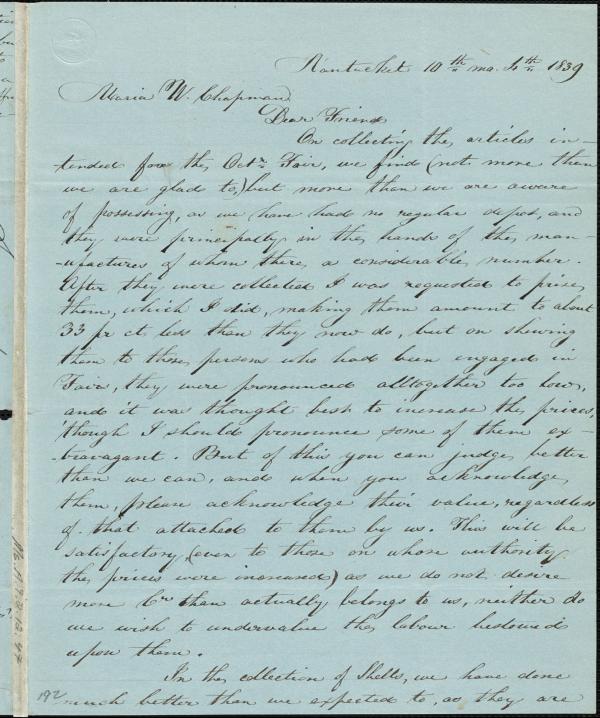 Nantucket 10th mo. 4th 1839
Maria W. Chapman
Dear Friend
On collecting the articles in-
tended for the Octr. Fair, we find (not more than
we are glad to,) but more than we are aware
of possessing, as we have had no regular depot, and
they were principally in the hands of the man-
-ufactures of whom there, a considerable number.
After they were collected I was requested to prise
them, which I did, making them amount to about
33 pr ct. less than they now do, but on shewing
them to those persons who had been engaged in
Fairs, they were pronounced alltogether too low,
and it was thought best to increase the prices,
though I should pronounce some of them ex-
-travagant. But of this you can judge better
than we can, and when you acknowledge
them, please acknowledge their value, regardless
of that attached to them by us. This will be
satisfactory (even to those on whose authority
the prices were increased) as we do not desire
more Cr. than actually belongs to us, neither do
we wish to undervalue the labour bestowed
upon them.
In the collection of Shells, we have done
much better than we expected to, as they are
192